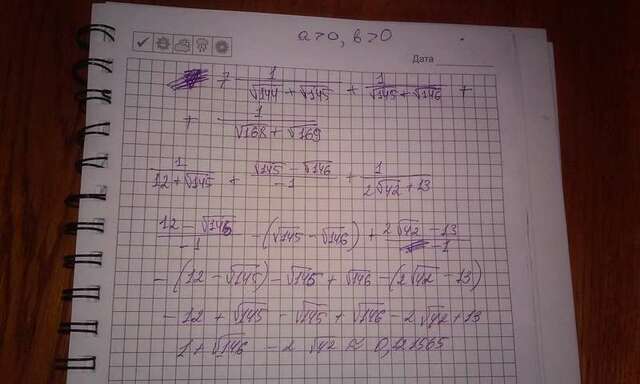 a>0, b>0
Дата
7 1/(√144 + √145) + 1/(√145 + √146) +
+ 1/(√168 + √169)
1/(12 + √145) + (√145 - √146)/(-1) + 1/(2√42 + 13)
(12 - √146)/(-1) - (√145 - √146) + (2√42 - 13)/(-1)
- (12 - √145) - √145 + √146 - (2√42 - 13)
- 12 + √145 - √145 + √146 - 2√42 + 13
1 + √146 - 2√42 ≈ 0,121565